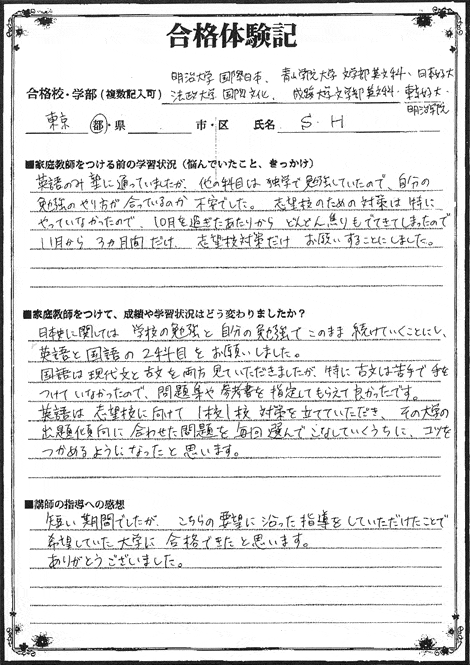 合格体験記
明治大学 国際日本、青山学院大学 文学部英文科・日本女子大
合格校・学部（複数記入可） 法政大学 国際文化、成蹊大学文学部英文科・東京女子大・
明治学院
東京 都・県 市・区 氏名 S.H
■家庭教師をつける前の学習状況（悩んでいたこと、きっかけ）
英語のみ塾に通っていましたが、他の科目は独学で勉強していたので、自分の
勉強のやり方が合っているのか不安でした。志望校のための対策は特に
やっていなかったので、10月を過ぎたあたりからどんどん焦りもでてきてしまったので
11月から3ヵ月間だけ、志望校対策だけお願いすることにしました。
■家庭教師をつけて、成績や学習状況はどう変わりましたか？
日本史に関しては学校の勉強と自分の勉強でこのまま続けていくことにし、
英語と国語の2科目をお願いしました。
国語は現代文と古文を両方見ていただきましたが、特に古文は苦手で手を
つけていなかったので、問題集や参考書を指定してもらえて良かったです。
英語は志望校に向けて1校1校対策を立てていただき、その大学の
出題傾向に合わせた問題を毎回選んでこなしていくうちに、コツを
つかめるようになったと思います。
■講師の指導への感想
短い期間でしたが、こちらの要望に沿った指導をしていただけたことで
希望していた大学に合格できたと思います。
ありがとうございました。